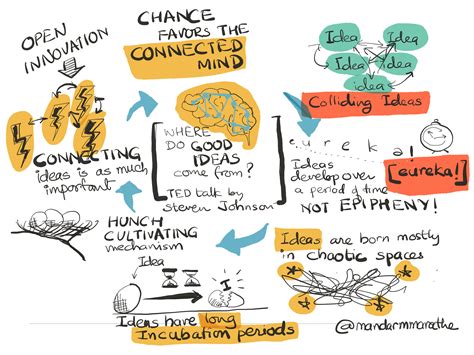 OPEN
INNOVATION
CHANCE
FAVORS THE
CONNECTED
MIND
Idea
Idea
Idea
Idea
idea
Colliding Ideas
CONNECTING
ideas is as much
important
WHERE
DO GOOD
IDEAS
come from?
TED talk by
Steven Johnson
e u r e k a !
[eureka!]
Ideas
develop over
a period of time
NOT EPIPHENY!
HUNCH
CULTIVATING
mechanism
Idea
Ideas have long
Incubation periods
Ideas are born mostly
in chaotic spaces
@mandarmmarathe